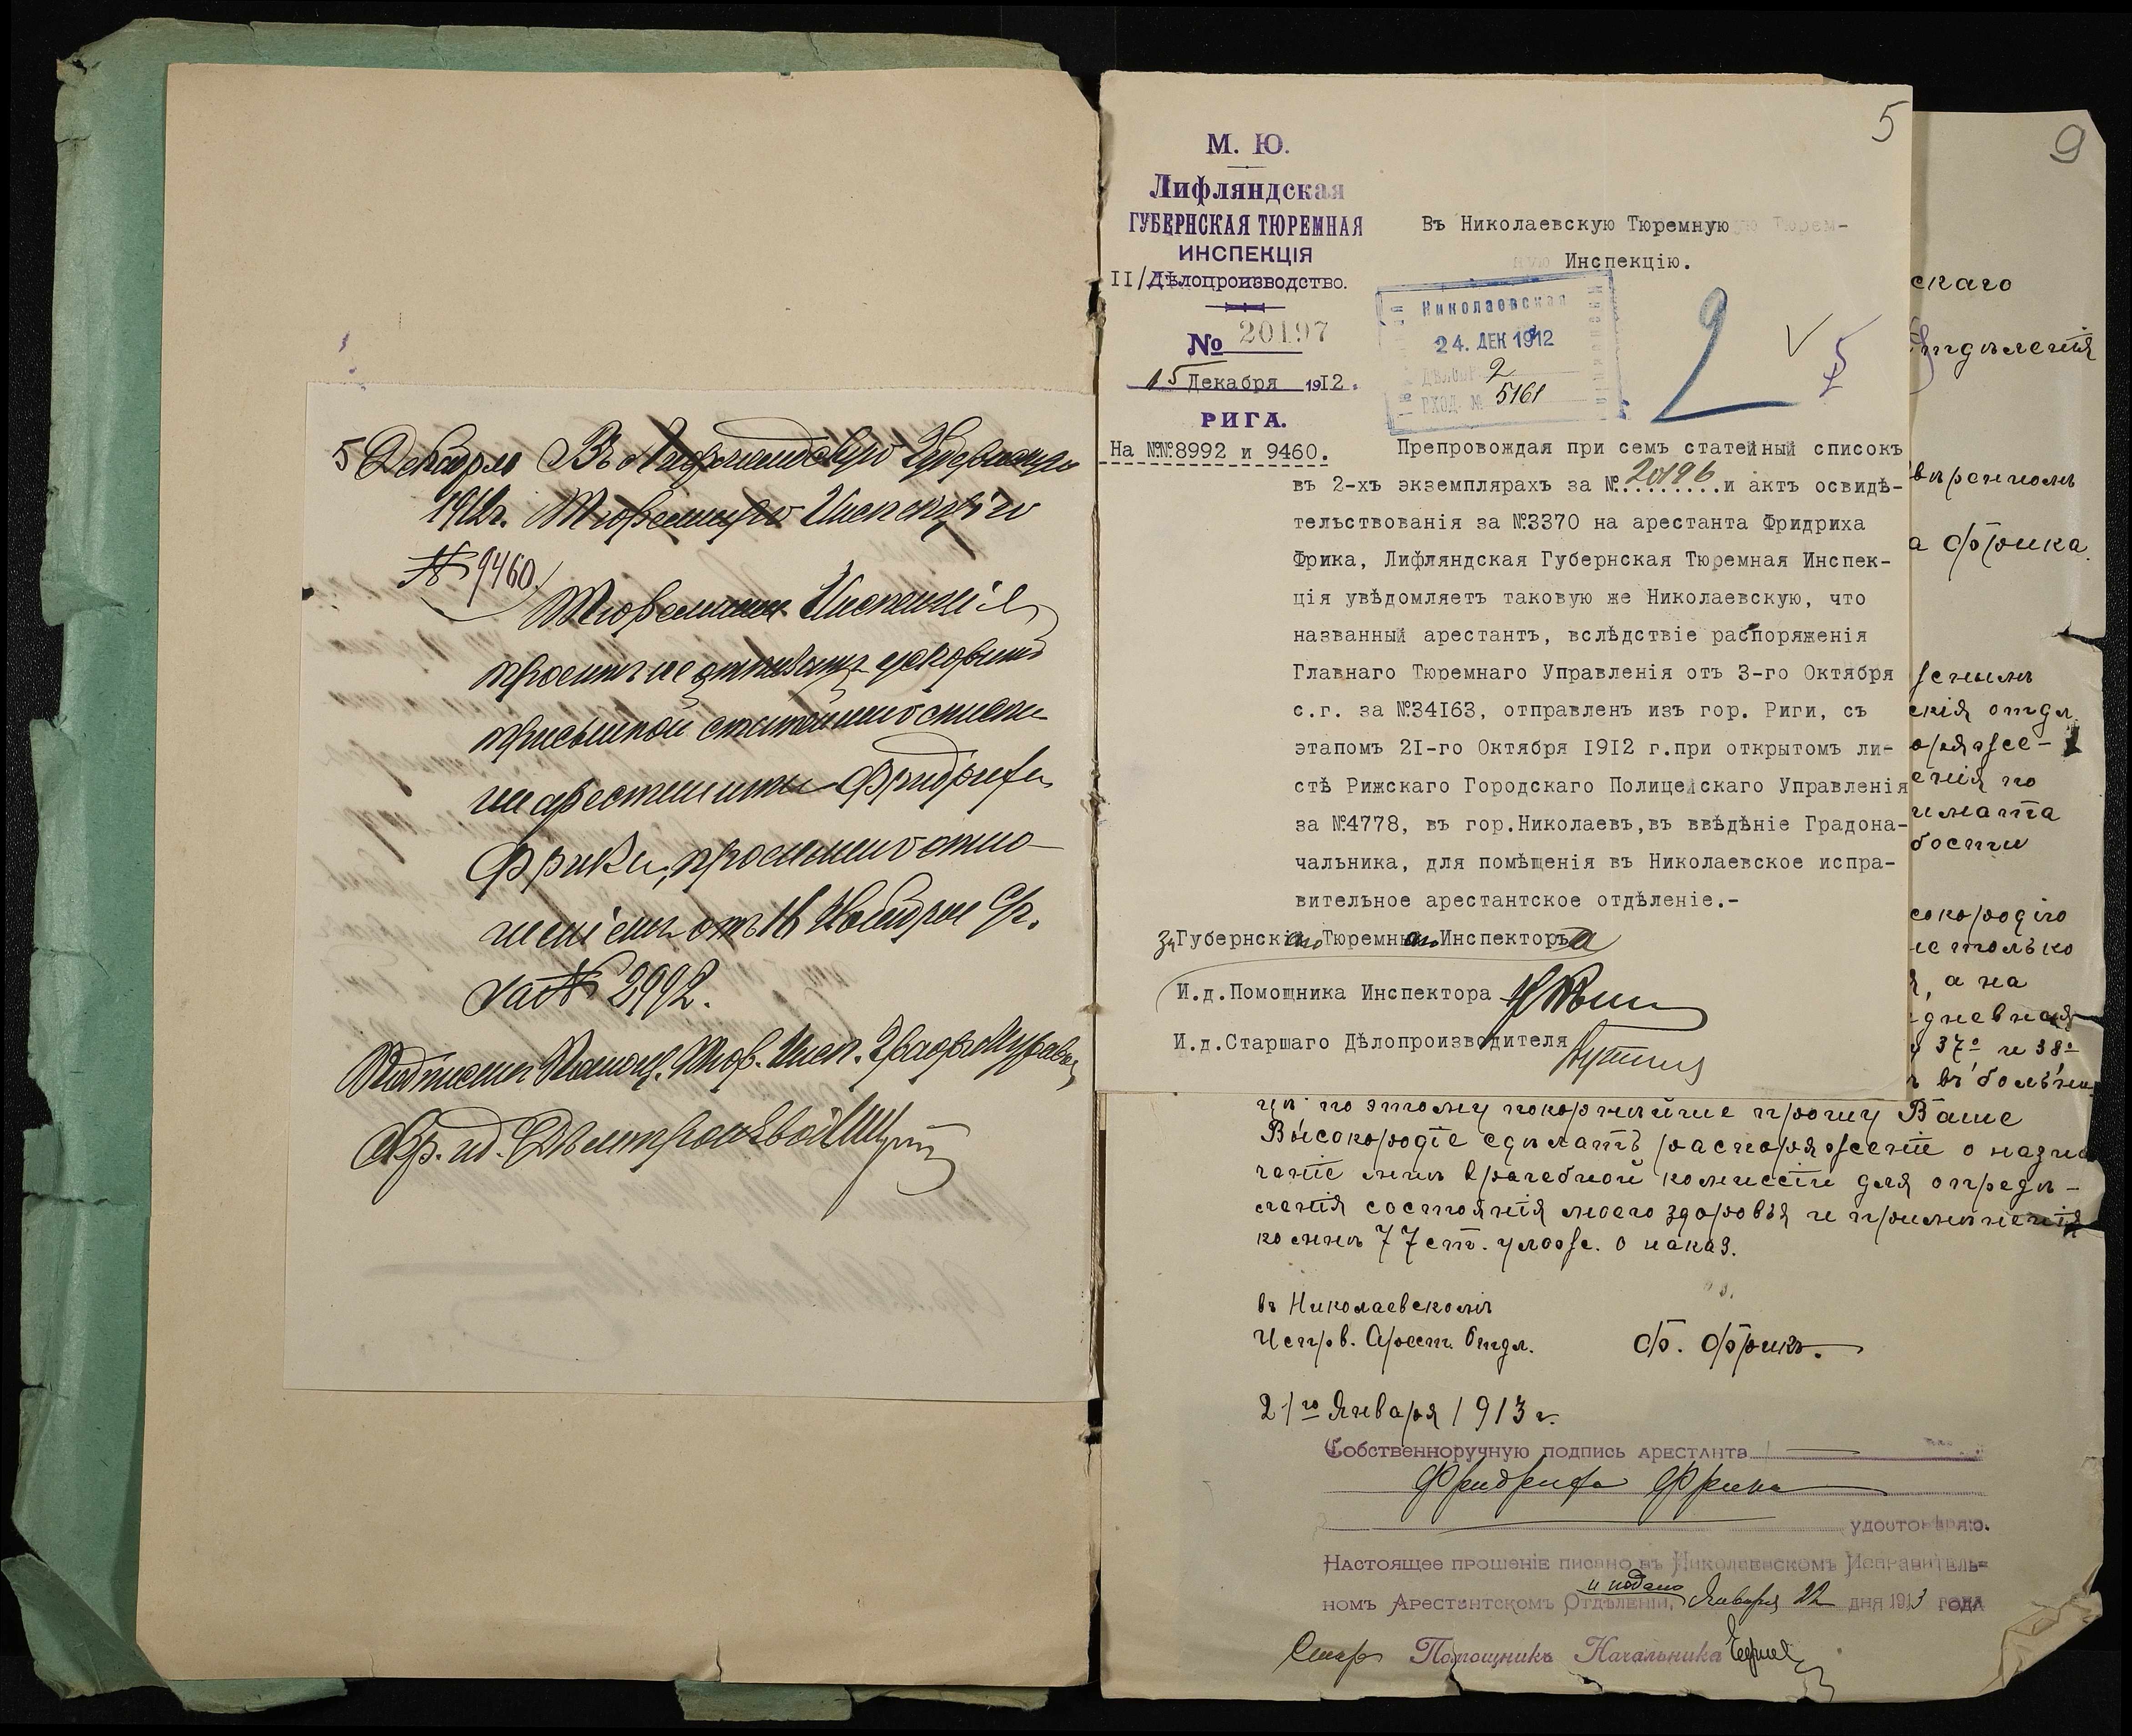 5 Декабря Въ Лифляндскую Губернскую
1912 г. Тюремную Инспекцію
№ 9460
Тюремная Инспекція
проситъ не отказать ускорить
присылкой статейнаго списка
на арестанта Фридриха
Фрика, просимаго отно-
шеніемъ отъ 16 Ноября с/г.
за № 8992.
Подписали Помощ. Тюр. Инсп.
5
М. Ю.
Лифляндская
ГУБЕРНСКАЯ ТЮРЕМНАЯ
ИНСПЕКЦІЯ
II/Дѣлопроизводство.
№ 20197
15 Декабря 1912.
РИГА.
На №№8992 и 9460.
Въ Николаевскую Тюремную
Инспекцію.
Николаевская
24. ДЕК 1912
2
ВХОД. № 5161
2
5
Препровождая при семъ статейный списокъ
въ 2-хъ экземплярахъ за №.20196.и актъ освидѣ-
тельствованія за №3370 на арестанта Фридриха
Фрика, Лифляндская Губернская Тюремная Инспек-
ція увѣдомляетъ таковую же Николаевскую, что
названный арестантъ, вслѣдствіе распоряженія
Главнаго Тюремнаго Управленія отъ 3-го Октября
с.г. за №34163, отправленъ изъ гор. Риги, съ
этапомъ 21-го Октября 1912 г.при открытомъ ли-
стѣ Рижскаго Городскаго Полицейскаго Управленія
за №4778, въ гор.Николаевъ,въ ввѣдѣніе Градона-
чальника, для помѣщенія въ Николаевское испра-
вительное арестантское отдѣленіе.-
За Губернскаго Тюремнаго Инспектора
И.д.Помощника Инспектора
И.д.Старшаго Дѣлопроизводителя
9
скаго
Отдѣленія
а Фрика
скія отдѣ
по
и мата
сокородіе
не только
, а на
дневная
37º и 38º
въ больни
цѣ по этому покорнѣйше прошу Ваше
Высокородіе сдѣлать распоряженіе о назна
ченіе мнѣ врачебной комиссіи для опредѣ-
ленія состоянія моего здоровья и примѣненія
ко мнѣ 77 ст. улож. о наказ.
въ Николаевскомъ
Испрв. Арест. Отдл. Ф. Фрикъ.
21го Января 1913 г.
Собственноручную подпись арестанта
Фридриха Фрика
удостовѣряю.
Настоящее прошеніе писано въ Николаевскомъ Исправитель=
номъ Арестантскомъ Отдѣленіи, и подано Января 22 дня 1913 года
Стар Помощникъ Начальника